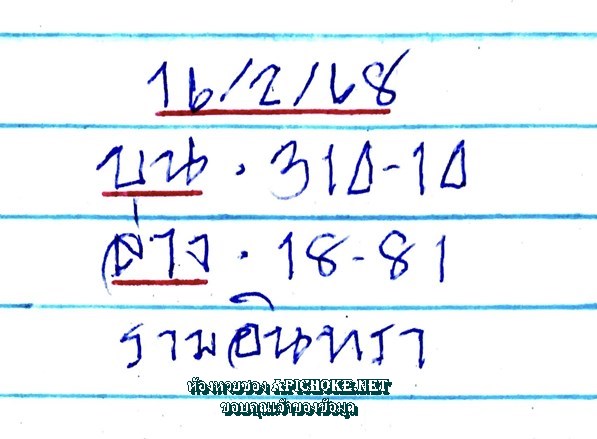 16/2/68
บน . 310-10
ล่าง . 18-81
รามอินทรา
ห้องหวยซอง APICHOKE.NET
ขอบคุณเจ้าของข้อมูล